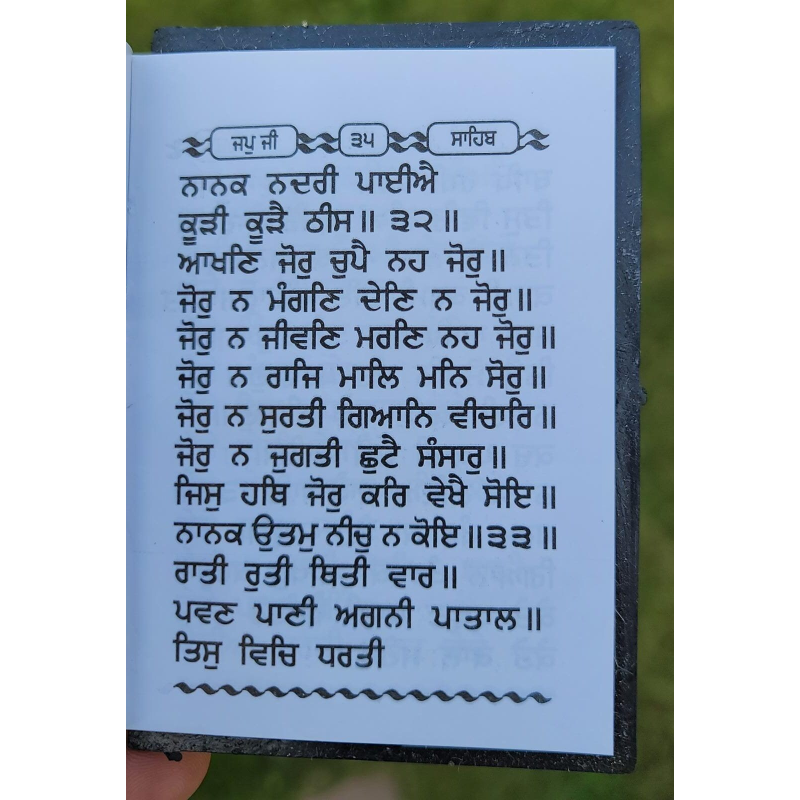 ਜਪੁ ਜੀ ੩੫ ਸਾਹਿਬ
ਨਾਨਕ ਨਦਰੀ ਪਾਈਐ
ਕੂੜੀ ਕੂੜੈ ਠੀਸ॥ ੩੨॥
ਆਖਣਿ ਜੋਰੁ ਚੁਪੈ ਨਹ ਜੋਰੁ॥
ਜੋਰੁ ਨ ਮੰਗਣਿ ਦੇਣਿ ਨ ਜੋਰੁ॥
ਜੋਰੁ ਨ ਜੀਵਣਿ ਮਰਣਿ ਨਹ ਜੋਰੁ॥
ਜੋਰੁ ਨ ਰਾਜਿ ਮਾਲਿ ਮਨਿ ਸੋਰੁ॥
ਜੋਰੁ ਨ ਸੁਰਤੀ ਗਿਆਨਿ ਵੀਚਾਰਿ॥
ਜੋਰੁ ਨ ਜੁਗਤੀ ਛੁਟੈ ਸੰਸਾਰੁ॥
ਜਿਸੁ ਹਥਿ ਜੋਰੁ ਕਰਿ ਵੇਖੈ ਸੋਇ॥
ਨਾਨਕ ਉਤਮੁ ਨੀਚੁ ਨ ਕੋਇ॥੩੩॥
ਰਾਤੀ ਰੁਤੀ ਥਿਤੀ ਵਾਰ॥
ਪਵਣ ਪਾਣੀ ਅਗਨੀ ਪਾਤਾਲ॥
ਤਿਸੁ ਵਿਚਿ ਧਰਤੀ